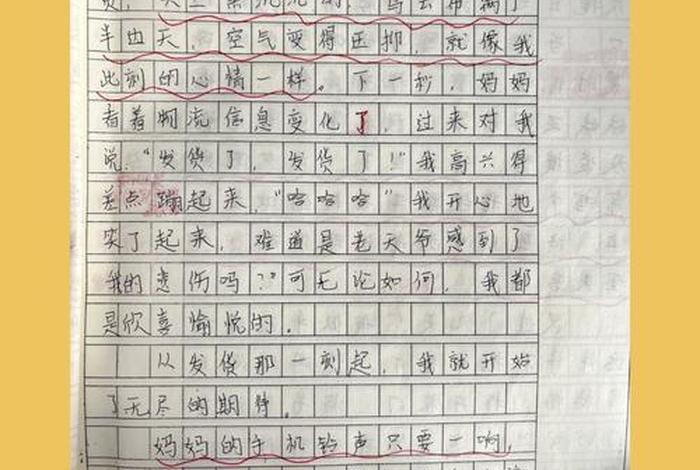 半边天，空气变得压抑，就像我
此刻的心情一样。下一秒，妈妈
看着物流信息变化了，过来对我
说："发货了，发货了！"我高兴得
差点蹦起来，"哈哈哈"我开心地
笑了起来，难道是老天爷感到了
我的悲伤吗？可无论如何，我都
是欣喜愉悦的。
从发货那一刻起，我就开始
了无尽的期待。
妈妈的手机铃声只要一响，